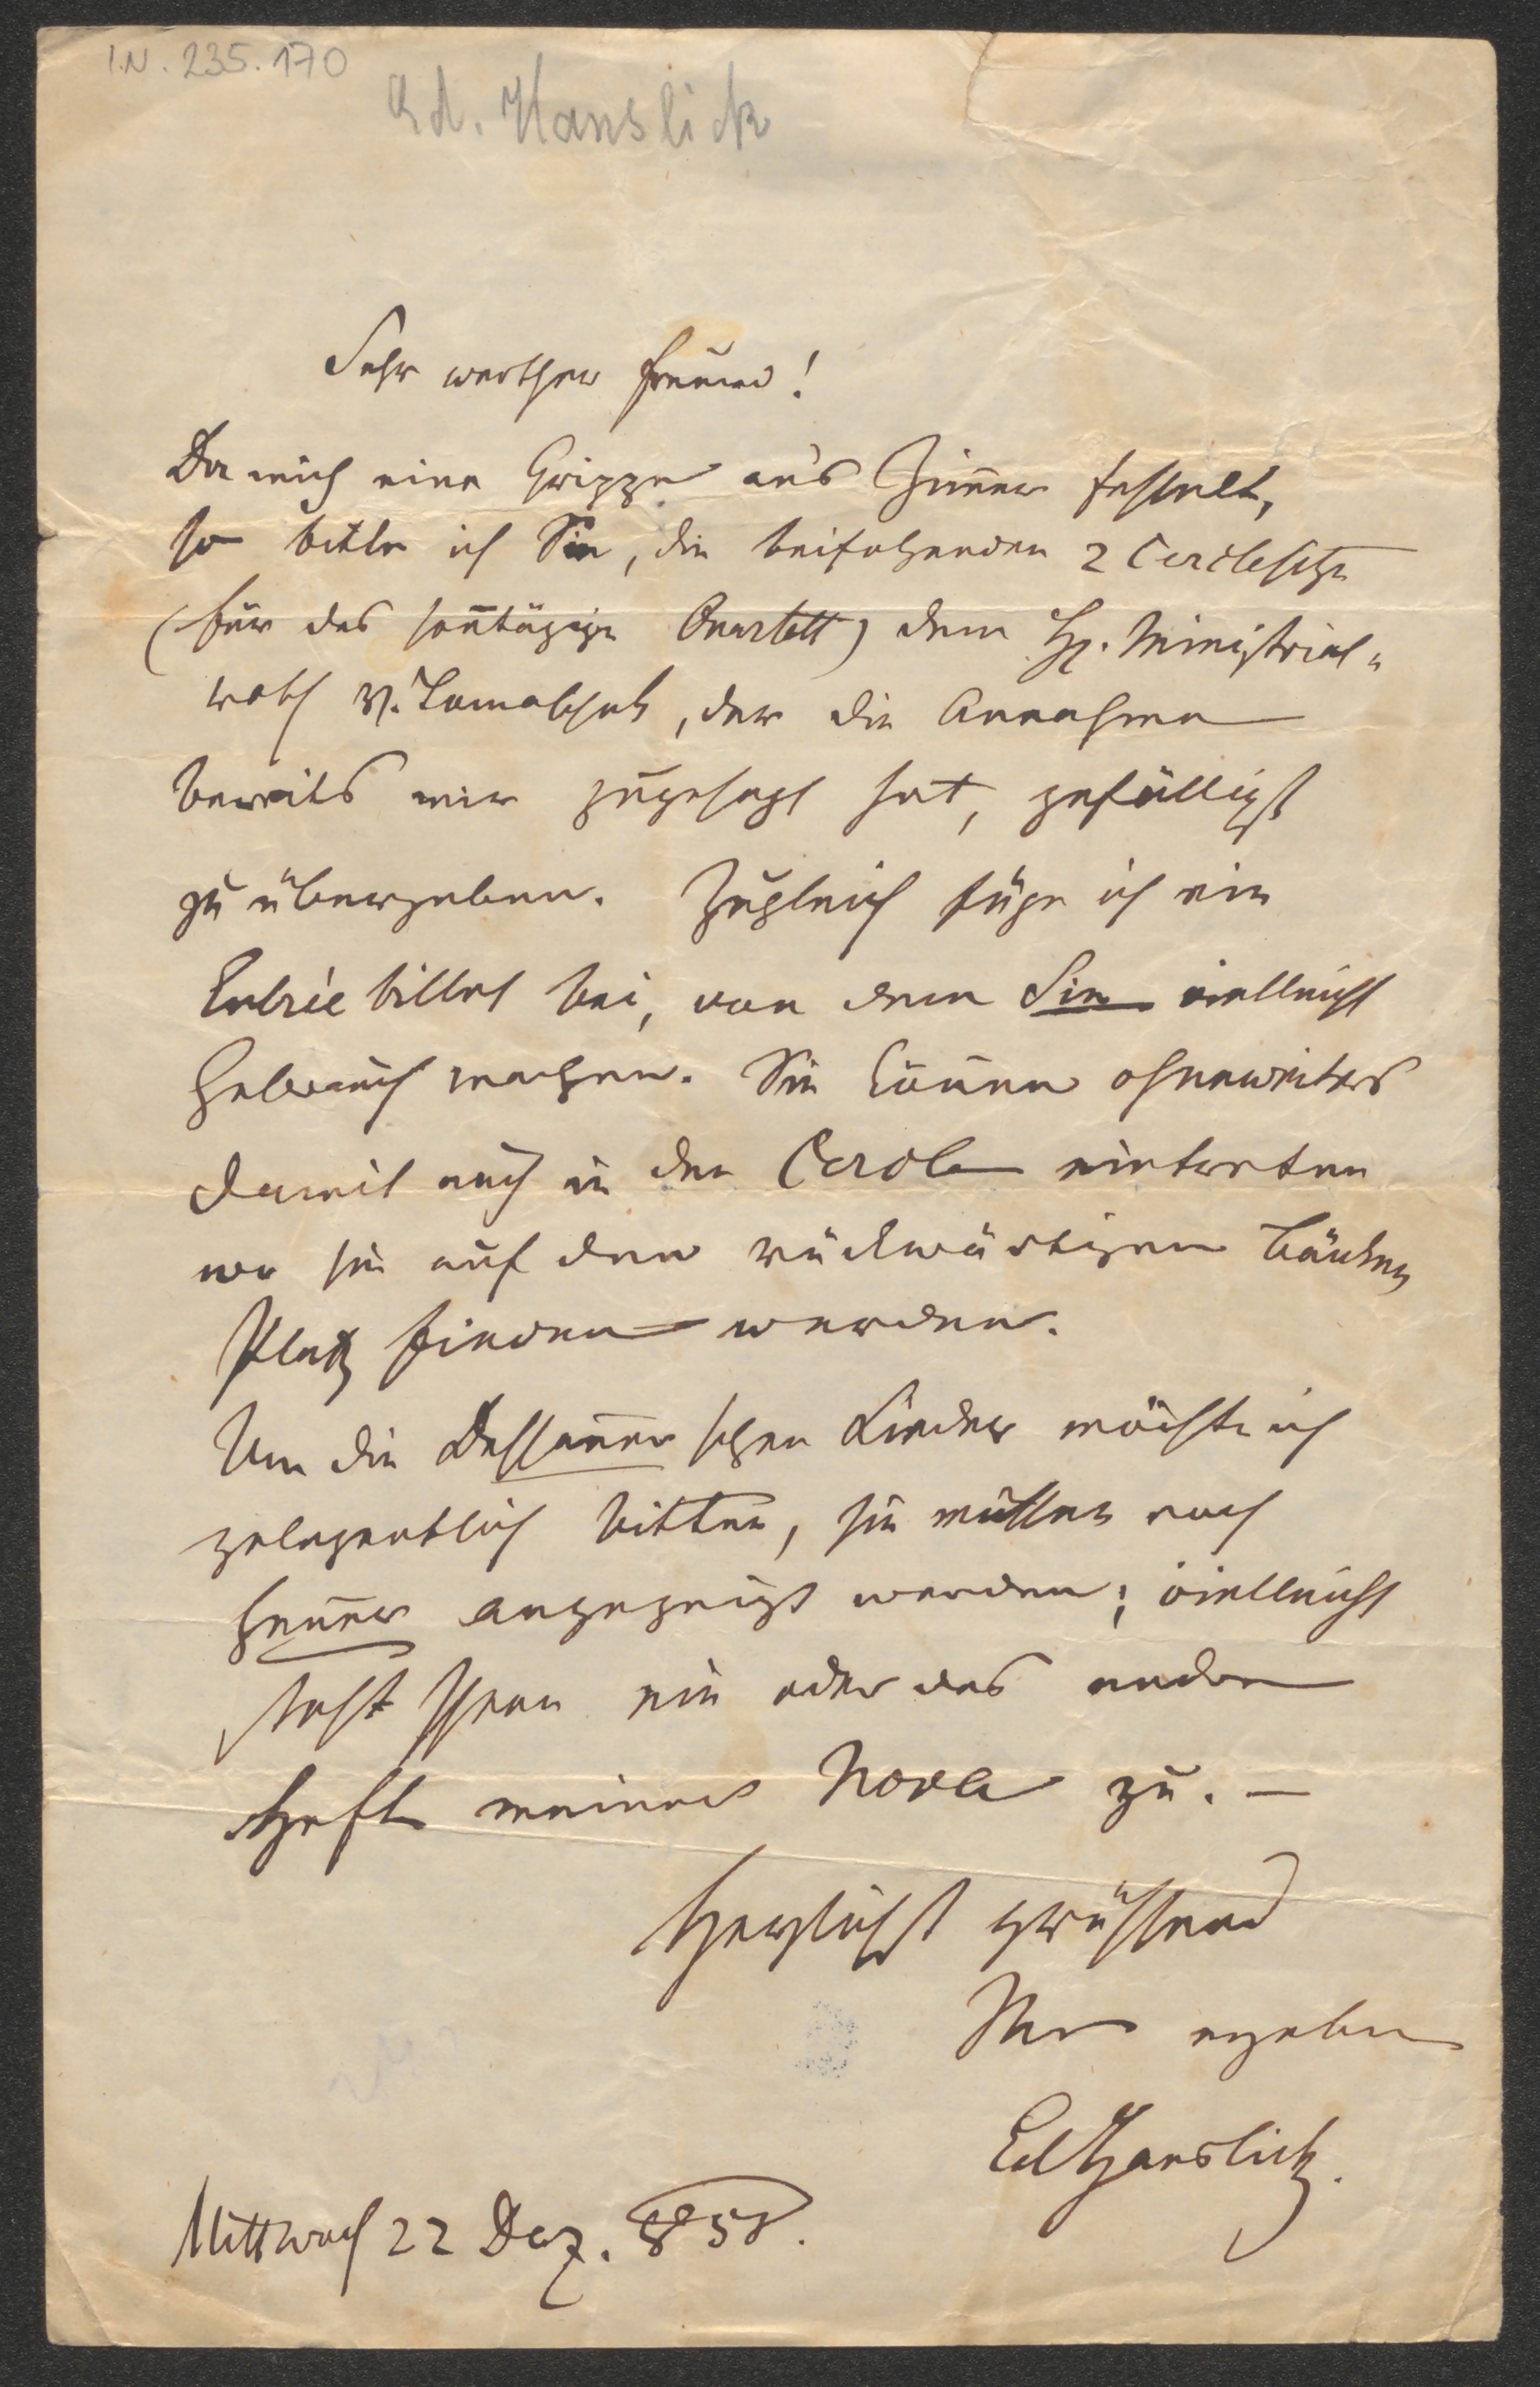 I.N. 235.170
Ed. Hanslick
Sehr werther Freund!
Da mich eine Grippe ans Zim̄er fesselt,
so bitte ich Sie, die beifolgenden 2 Cerclesitze
(für das son̄tägige Quartett) dem H. Ministerial-
rath v. Tomaschek, der die Annahme
bereits mir zugesagt hat, gefälligst
zu übergeben. Zugleich füge ich ein
Entrée billet bei, von dem Sie vielleicht
Gebrauch machen. Sie kön̄en ohneweiters
damit auch in den Cercle eintreten
wo sie auf den rückwärtigen Bänken
Platz finden werden.
Um die Dessauer'schen Lieder möchte ich
gelegentlich bitten, sie müssen noch
heuer angezeigt werden; vielleicht
steht Ihnen ein oder das andre
Heft meiner Nova zu. —
Herzlichst grüssend
Ihr ergebner
Ed Hanslick.
Mittwoch 22 Dez. 858.